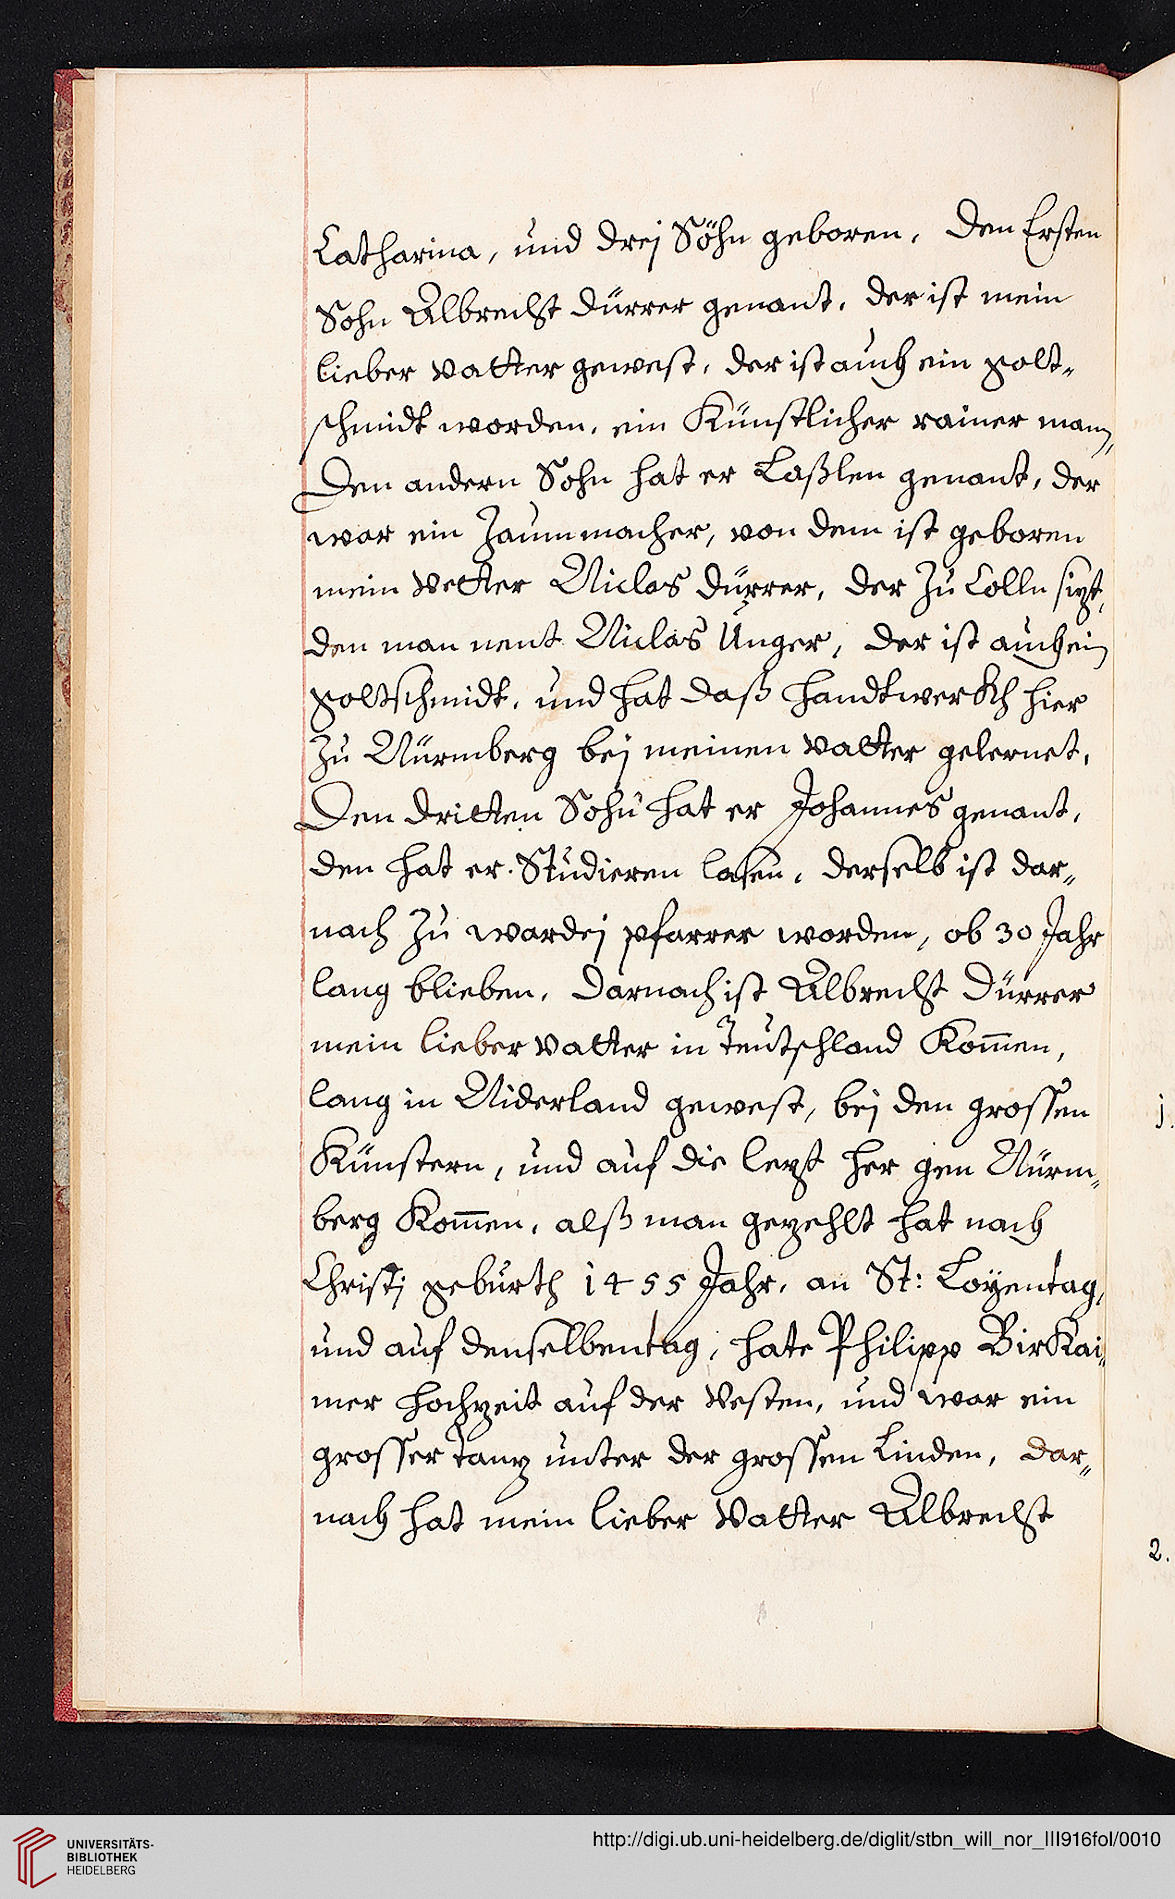 Catharina, und drej Söhn geboren. Den Ersten
Sohn Albrecht Dürrer genant. der ist mein
lieber vatter gewest. der ist auch ein golt-
schmidt worden. ein Künstlicher rainer mann,
Den andern Sohn hat er Laßlen genant, der
war ein Zaummacher, von dem ist geboren
mein Vetter Niclas Dürrer, der Zu Cölln sizt,
den man nent Niclas Unger, der ist auch ein
goltschmidt. und hat daß handtwerckh hier
Zu Nürmberg bej meinen vatter gelernet.
Den dritten Sohn hat er Johannes genant.
den hat er Studieren lasen. derselb ist dar-
nach Zu wardej pfarrer worden, ob 30 Jahr
lang blieben. Darnach ist Albrecht Dürrer
mein lieber vatter in Teutschland Kom̄en,
lang in Niderland gewest, bej den grossen
Künstern, und auf die lezt her gen Nürm-
berg Kom̄en. alß man gezehlt hat nach
Christj geburth 1455 Jahr. an St: Loyentag,
und auf denselben tag, hate Philipp Birkai-
mer hochzeit auf der Vesten, und war ein
grosser Tanz unter der grossen Linden, dar-
nach hat mein lieber Vatter Albrecht
j.
2.
UNIVERSITÄTS-
BIBLIOTHEK
HEIDELBERG
http://digi.ub.uni-heidelberg.de/diglit/stbn_will_nor_III916fol/0010